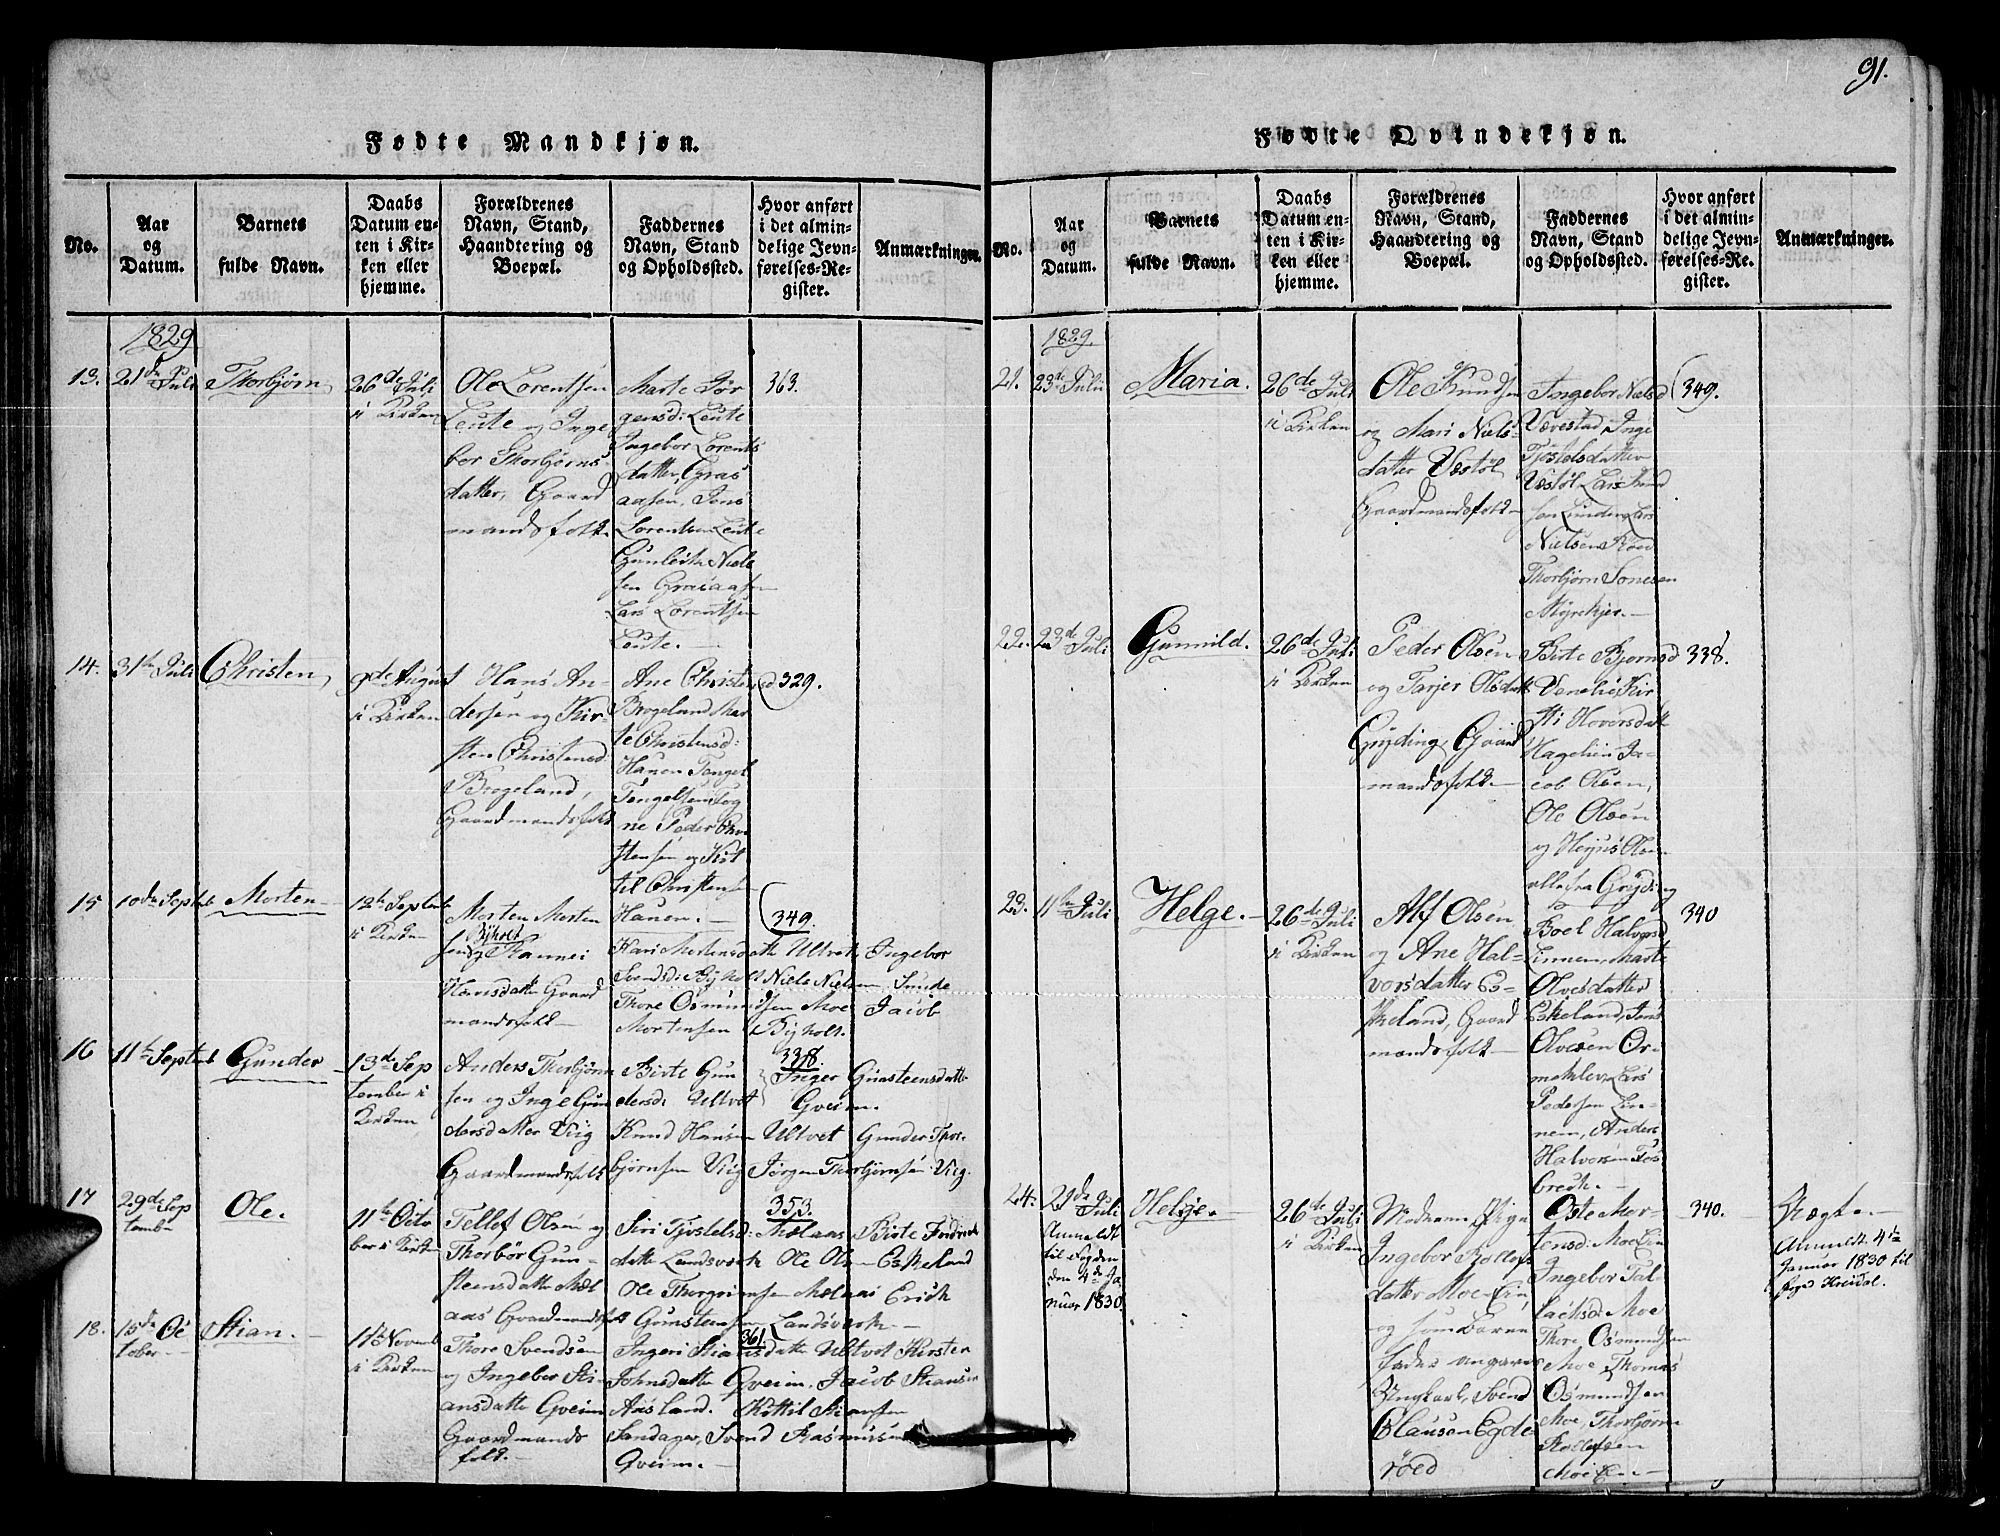 91.
Fødte Mandkjøn.
No.
Aar
og
Datum.
Barnets
fulde Navn.
Daabs
Datum en-
ten i Kir-
ken eller
hjemme.
Forældrenes
Navn, Stand,
Haandtering og
Boepæl.
Faddernes
Navn, Stand
og Opholdssted.
Hvor anført
i det almin-
delige Jevn-
førelses-Re-
gister.
Anmærkninger.
1829
13.
21de Juli
Thorbjørn
26de Juli
i Kirken
Ole Lorentsen
Leute og Inge
bor Thorbjørns-
datter, Gaard
mandsfolk.
Marte Jør
gensd: Leute
Ingebor Lorents
datter, Gras
aasen, Jens
Lorentsen Leute
Gunleik Niels
sen Grasaasen
Lars Lorentsen
Leute.
363.
14.
31te Juli
Christen
9de August
i Kirken
Hans An-
dersen og Kir-
sten Christensd.
Brogeland,
Gaardmandsfolk
Ane Christensd
Brogeland Mar-
te Christensd:
Hauen Tengel
Tengelsen Sog
ne Peder Chri
stensen og Kit
til Christensen
Hauen.
329.
15
10de Septb
Morten
12te Septemb
i Kirken
Morten Morten
sen Byholt
og Rannei
Hansdatte Gaard
mandsfolk
349.
Kari Mortensdatte Ultvet, Ingebor
Svensd: Byholt Niels Nielsen, Sunde
Thore Osmundsen Moe Jacob
Mortensen Byholt.
16
11te Septemb
Gunder
13de Sep
tember i
Kirken
Anders Thorbjørn
sen og Inge Gun
dersdatter Viig
Gaardmandsfolk
338.
Birte Gun
dersd: Ultvet Inger Gunsteensdatte
Gveim.
Knud Hansen Ultvet Gunder Thor-
bjørnsen Viig Jørgen Thorbjørnsen Viig.
17
29de Sep
temb
Ole.
11te Octo
ber i Kirken
Tellef Olsen og
Thorbør Gun-
steensdatte Møl
aas Gaardmandsfolk
353.
Siri Tjostelsd: Molaas Birte Fredrich
datte Landsverk Ole Olsen Eskeland
Ole Thorgrimsen Molaas Erich
Gunsteensen Landsverk
18.
15de Oc
tober
Stian.
1te Novemb
i Kirken
Thore Svendsen
og Ingebor Sti-
ansdatte Gveim
Gaardmands
folk.
361.
Ingeri Stiansdatte Ultvet Kirsten
Johnsdatte Gveim, Jacob Stiansen
Aasland. Kittil Stiansen
Sandager, Svend Rasmusen
Gveim.
Fødte Qvindekjøn.
No.
Aar
og
Datum.
Barnets
fulde Navn.
Daabs
Datum en-
ten i Kir-
ken eller
hjemme.
Forældrenes
Navn, Stand,
Haandtering og
Boepæl.
Faddernes
Navn, Stand
og Opholdssted.
Hvor anført
i det almin-
delige Jevn-
førelses-Re-
gister.
Anmærkninger.
1829.
21.
23de Julii
Maria.
26de Juli
i Kirken
Ole Knudsen
og Mari Niels-
datter Vestøl
Gaardmandsfolk
Ingebor Nielsd
Vævestad, Inge
Tjostelsdatter
Vestøl Lars Knud
sen Linder Lars
Nielsen Røed
Thorbjørn Sonesen
Myrekjer.
349.
22.
23de Juli
Gunnild.
26de Juli
i Kirken
Peder Olsen
og Tarjer Olsdatt
Gryding, Gaard
mandsfolk
Birte Bjornsd
Veneli Kir
sti Hoversdatt
Hagelien Ja-
cob Olsen,
Ole Olsen
og Olsen
alle fra Gryding
338.
23.
11te Juli
Helge.
26de Juli
i Kirken
Alf Olsen
og Ane Hal-
vorsdatter Es-
keland, Gaard
mandsfolk
Boel Halvorsd
Linnem, Marte
Olvesdatter
Eskeland, Jens
Olvesen Or-
mekler, Lars
Pedersen Lin-
nem, Anders
Halvorsen Fos
breck.
340
24.
21de Juli
Anmeldt
til Fogden
den 4de Ja
nuar 1830.
Helge.
26de Juli
i Kirken
Madnam Pige
Ingebor Rollefs
datter Moe Ein
og som Barne
fader angaves
Ungkarl, Svend
Clausen Egde
røed
Oste Mor-
tensd: Moe Ein
Ingebor Tal
lacksd: Moe
Thore Osmundsen
Moe, Thomas
Osmundsen
Moe, Thorbjørn
Rollefsen
Moe Ein.
340.
Uægte.
Anmeldt 4de
Januar 1830 til
Foged